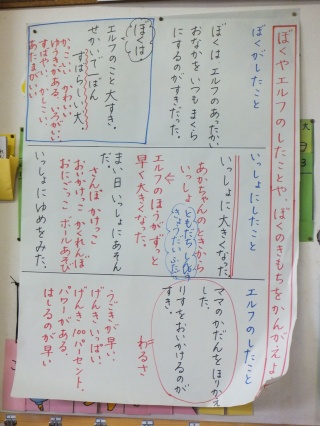 ぼくやエルフのしたことや、ぼくのきもちをかんがえよう
ぼくがしたこと
ぼくは エルフのあったかい
おなかを いつも まくら
にするのが すきだった。
ぼくは
エルフのこと 大すき。
せかいで一ばん
すばらしい犬。
かっこいい かわいい
ゆうきがある
すばやい かしこい
あたまがいい
いっしょにしたこと
いっしょに大きくなった。
あかちゃんのときから
いっしょ
ともだち
きょうだい ふたご
エルフのほうがずっと
早く 大きくなった。
まい日 いっしょに あそん
だ。
さんぽ かけっこ
おいかけっこ かくれんぼ
おにごっこ ボールあそび
いっしょに ゆめをみた。
エルフのしたこと
ママのかだんをほりかえ
した。
りすをおいかけるのが
すき。
わるさ
うごきが早い
げんきいっぱい
げんき100パーセント
パワーがある
はしるのが早い